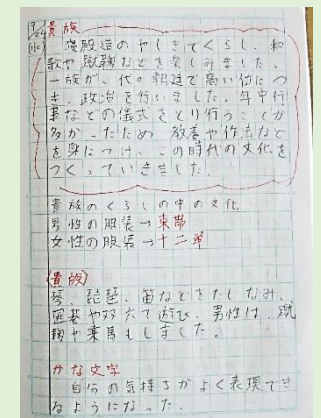 貴族
寝殿造のやしきでくらし、和
歌や蹴鞠などを楽しみました。
一族が、代々朝廷で高い位につ
き、政治を行いました。年中行
事などの儀式をとり行うことが
多かったため、教養や作法など
を身につけ、この時代の文化を
つくっていきました。
貴族のくらしの中の文化
男性の服装→束帯
女性の服装→十二単
(貴族)
琴、琵琶、笛などをたしなみ、
囲碁や双六で遊び、男性は、蹴
鞠や乗馬もしました。
かな文字
自分の気持ちがよく表現でき
るようになった。